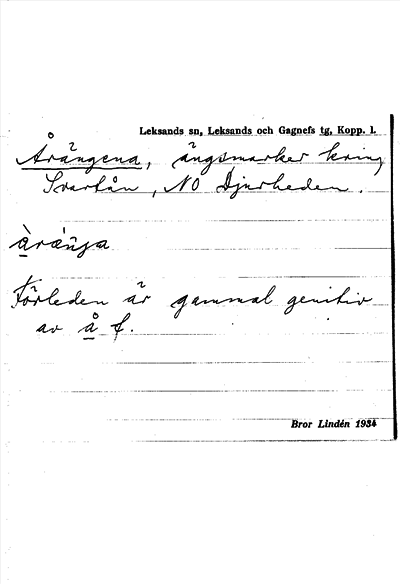 Leksands sn, Leksands och Gagnefs tg, Kopp. l.
Årängena, ängsmarker kring
Svartån, NO Djurheden.
Förleden är gammal genitiv
av å f.
Bror Lindén 1934